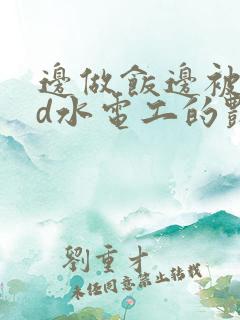 邊做飯邊被
d水電工的
劉重才
未經同意禁止轉載